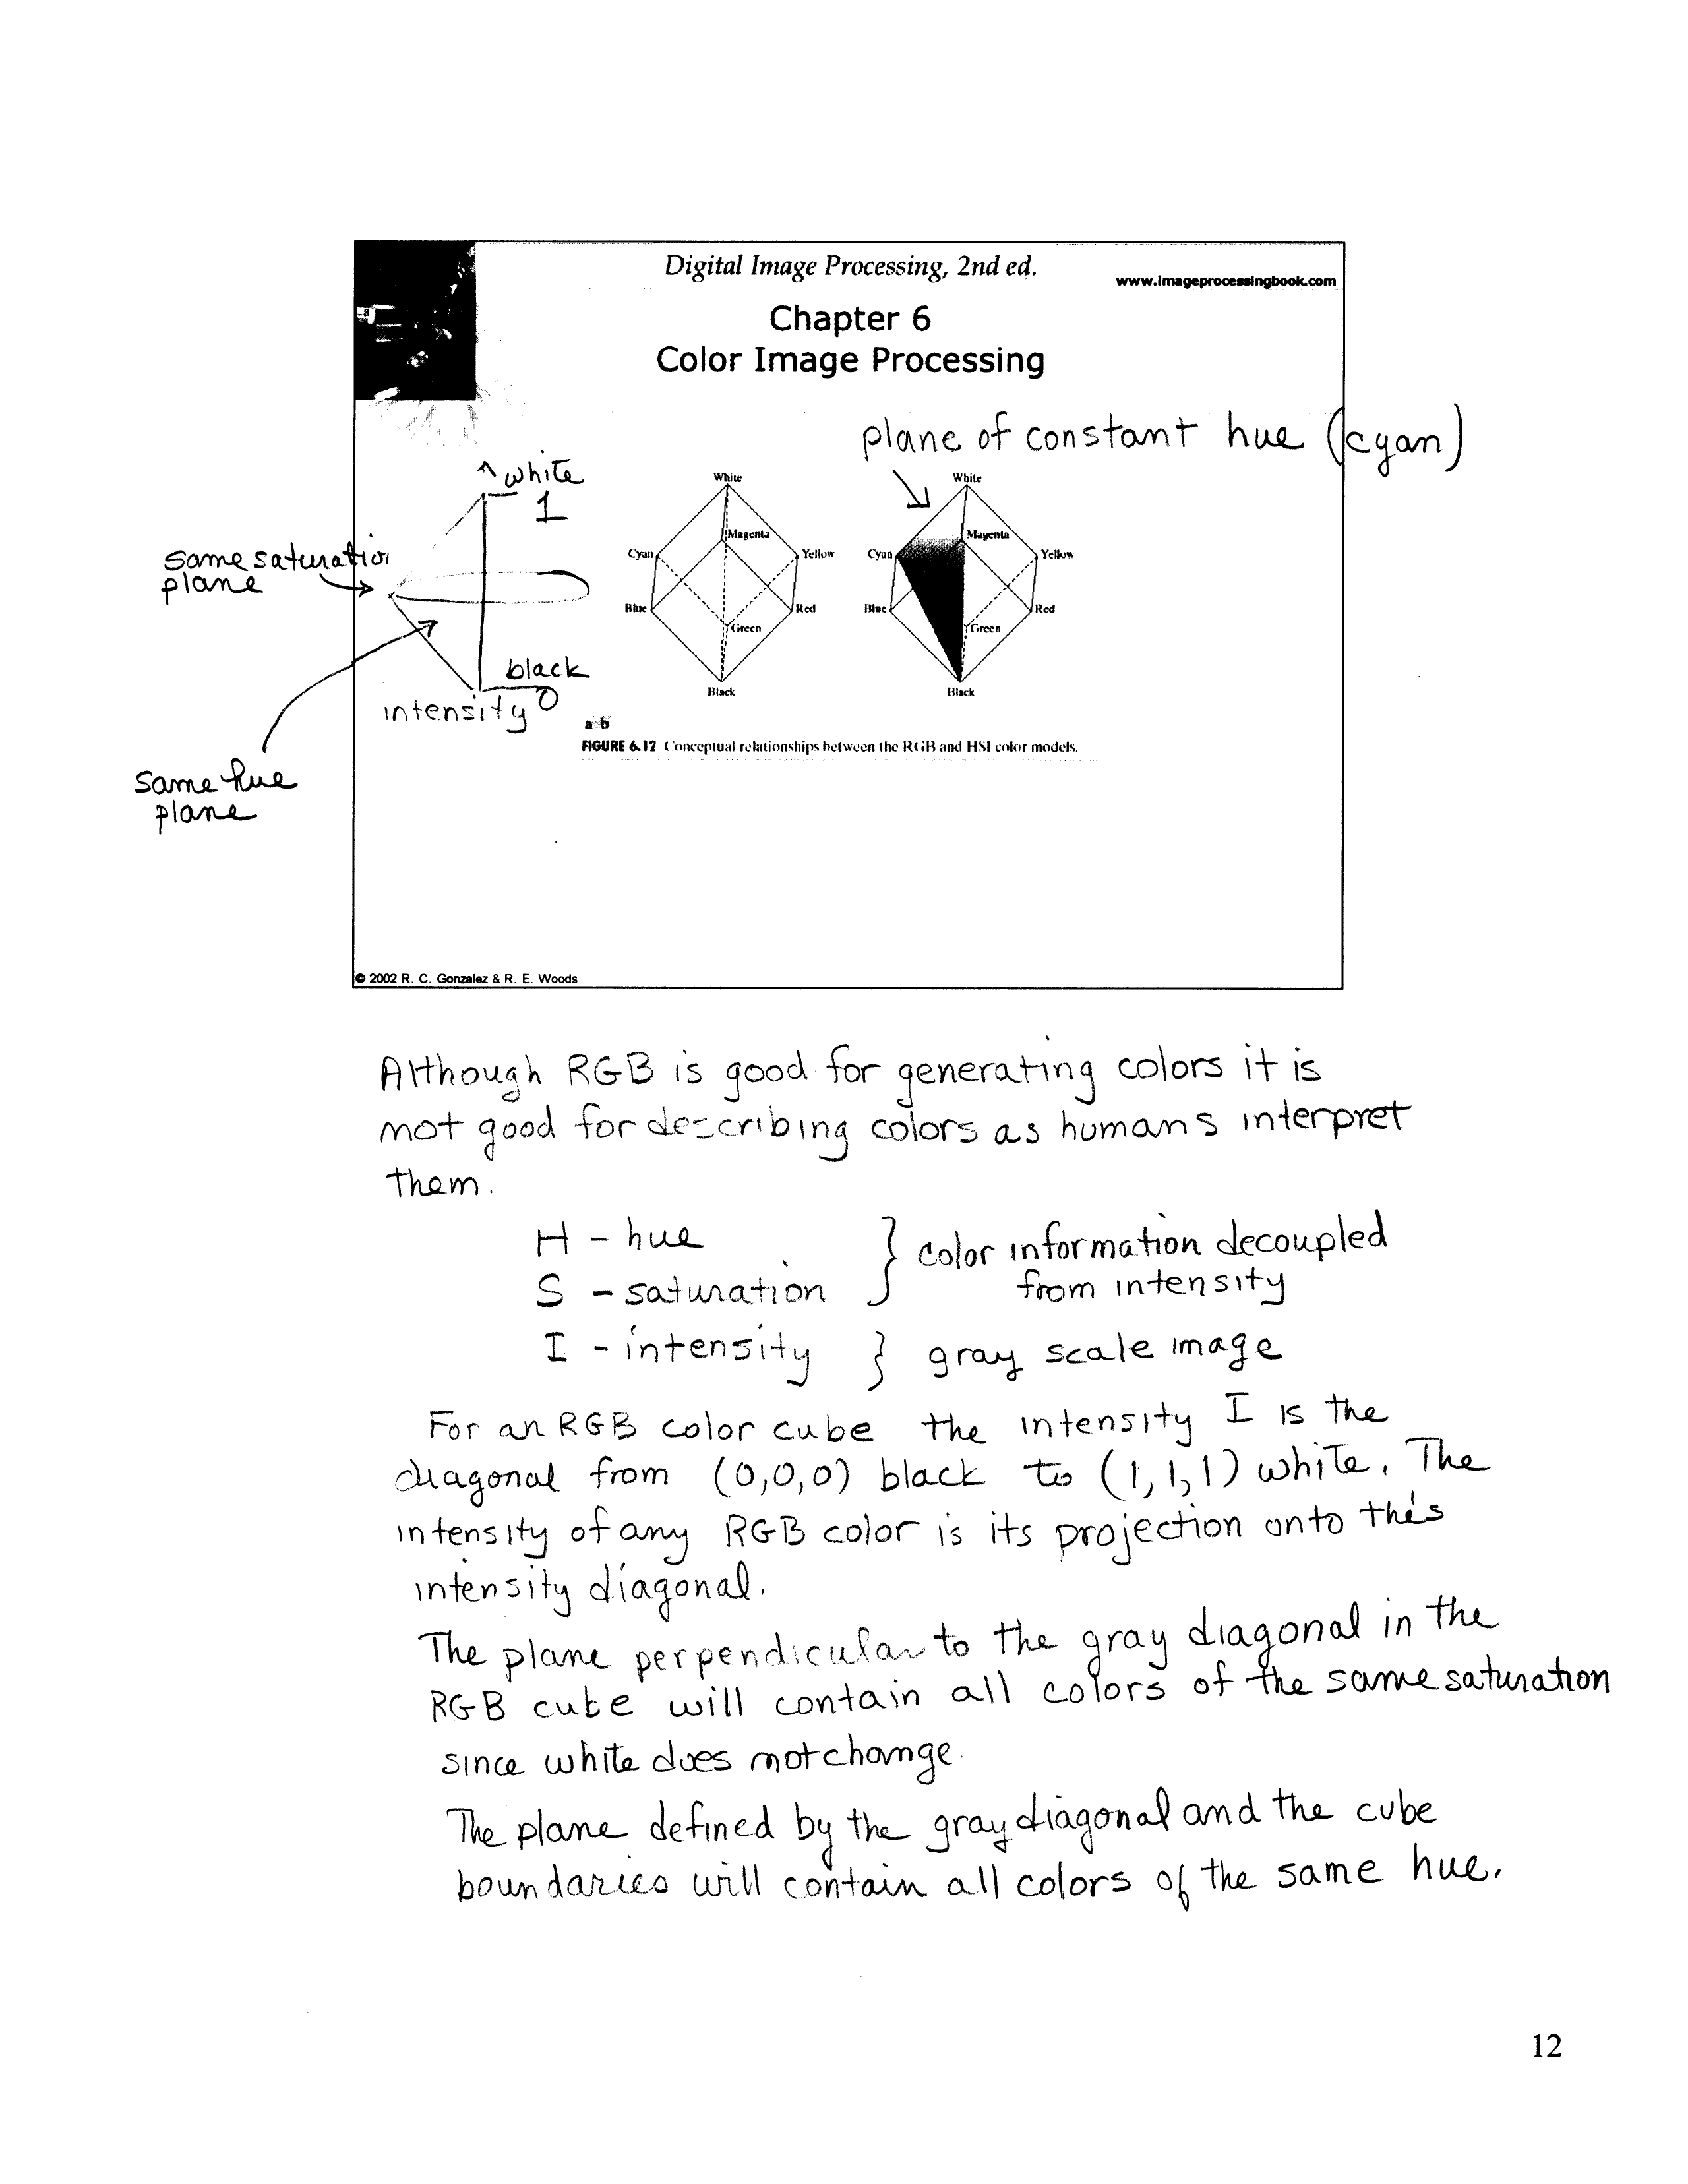 Digital Image Processing, 2nd ed.
www.imageprocessingbook.com
Chapter 6
Color Image Processing
plane of constant hue (cyan)
white
1
same saturation
plane
black
0
intensity
same hue
plane
White
Magenta
Cyan
Yellow
Blue
Red
Green
Black
White
Magenta
Cyan
Yellow
Blue
Red
Green
Black
a b
FIGURE 6.12 Conceptual relationships between the RGB and HSI color models.
© 2002 R. C. Gonzalez & R. E. Woods
Although RGB is good for generating colors it is
not good for describing colors as humans interpret
them.
H - hue } color information decoupled
S - saturation from intensity
I - intensity } gray scale image
For an RGB color cube the intensity I is the
diagonal from (0,0,0) black to (1,1,1) white. The
intensity of any RGB color is its projection onto this
intensity diagonal.
The plane perpendicular to the gray diagonal in the
RGB cube will contain all colors of the same saturation
since white does not change.
The plane defined by the gray diagonal and the cube
boundaries will contain all colors of the same hue.
12